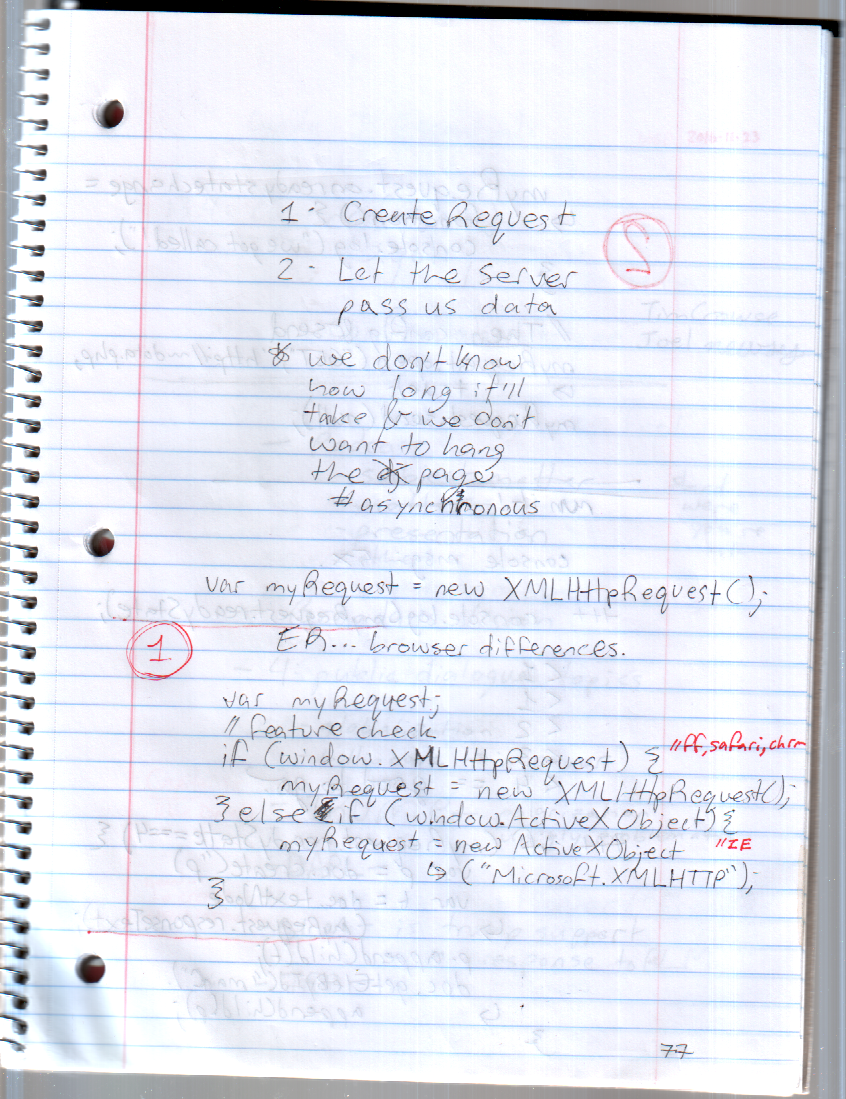 1- Create Request
2- Let the Server
pass us data
* we don't know
how long it'll
take & we don't
want to hang
the page
# asynchronous
var myRequest = new XMLHttpRequest();
1
ER... browser differences.
var myRequest;
// feature check
if (window.XMLHttpRequest) { //ff,safari,chrm
myRequest = new XMLHttpRequest();
} else if (window.ActiveXObject){
myRequest = new ActiveXObject //IE
↳ ("Microsoft.XMLHTTP");
}
77